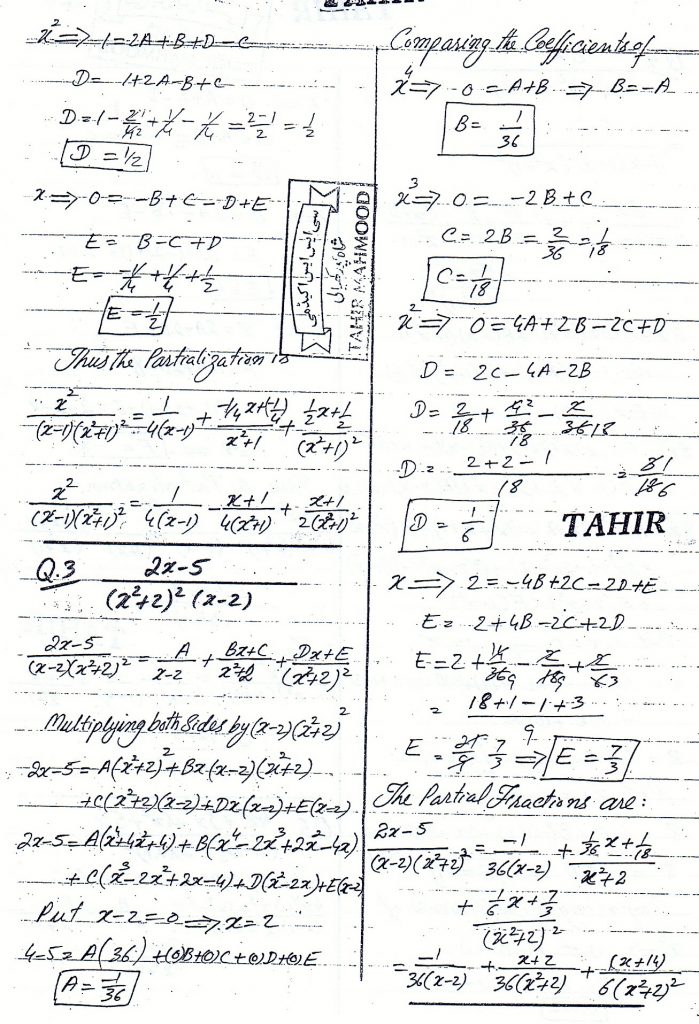 x² ⇒ 1 = 2A + B + D - C
D = 1 + 2A - B + C
D = 1 - 2/4 + 1/4 - 1/4 = (2-1)/2 = 1/2
D = 1/2
x ⇒ 0 = -B + C - D + E
E = B - C + D
E = -1/4 + 1/4 + 1/2
E = 1/2
Thus the Partialization is
x²/((x-1)(x²+1)²) = 1/(4(x-1)) + (-1/4 x + (-1/4))/(x²+1) + (1/2 x + 1/2)/(x²+1)²
x²/((x-1)(x²+1)²) = 1/(4(x-1)) - (x+1)/(4(x²+1)) + (x+1)/(2(x²+1)²)
Q.3 (2x-5)/((x²+2)²(x-2))
(2x-5)/((x-2)(x²+2)²) = A/(x-2) + (Bx+C)/(x²+2) + (Dx+E)/(x²+2)²
Multiplying both Sides by (x-2)(x²+2)²
2x-5 = A(x²+2)² + Bx(x-2)(x²+2)
+ C(x²+2)(x-2) + Dx(x-2) + E(x-2)
2x-5 = A(x⁴+4x²+4) + B(x⁴-2x³+2x²-4x)
+ C(x³-2x²+2x-4) + D(x²-2x) + E(x-2)
Put x-2=0 ⇒ x=2
4-5 = A(36) + (0)B + (0)C + (0)D + (0)E
A = -1/36
سی ایس ایس اکیڈمی
TAHIR MAHMOOD
Comparing the Coefficients of
x⁴ ⇒ 0 = A+B ⇒ B = -A
B = 1/36
x³ ⇒ 0 = -2B + C
C = 2B = 2/36 = 1/18
C = 1/18
x² ⇒ 0 = 4A + 2B - 2C + D
D = 2C - 4A - 2B
D = 2/18 + 4/36 - 2/36
D = (2+2-1)/18 = 3/18
D = 1/6
TAHIR
x ⇒ 2 = -4B + 2C - 2D + E
E = 2 + 4B - 2C + 2D
E = 2 + 4/36 - 2/18 + 2/6
= (18+1-1+3)/9
E = 21/9 7/3 ⇒ E = 7/3
The Partial Fractions are:
(2x-5)/((x-2)(x²+2)²) = -1/(36(x-2)) + (1/36 x + 1/18)/(x²+2)
+ (1/6 x + 7/3)/(x²+2)²
= -1/(36(x-2)) + (x+2)/(36(x²+2)) + (x+14)/(6(x²+2)²)